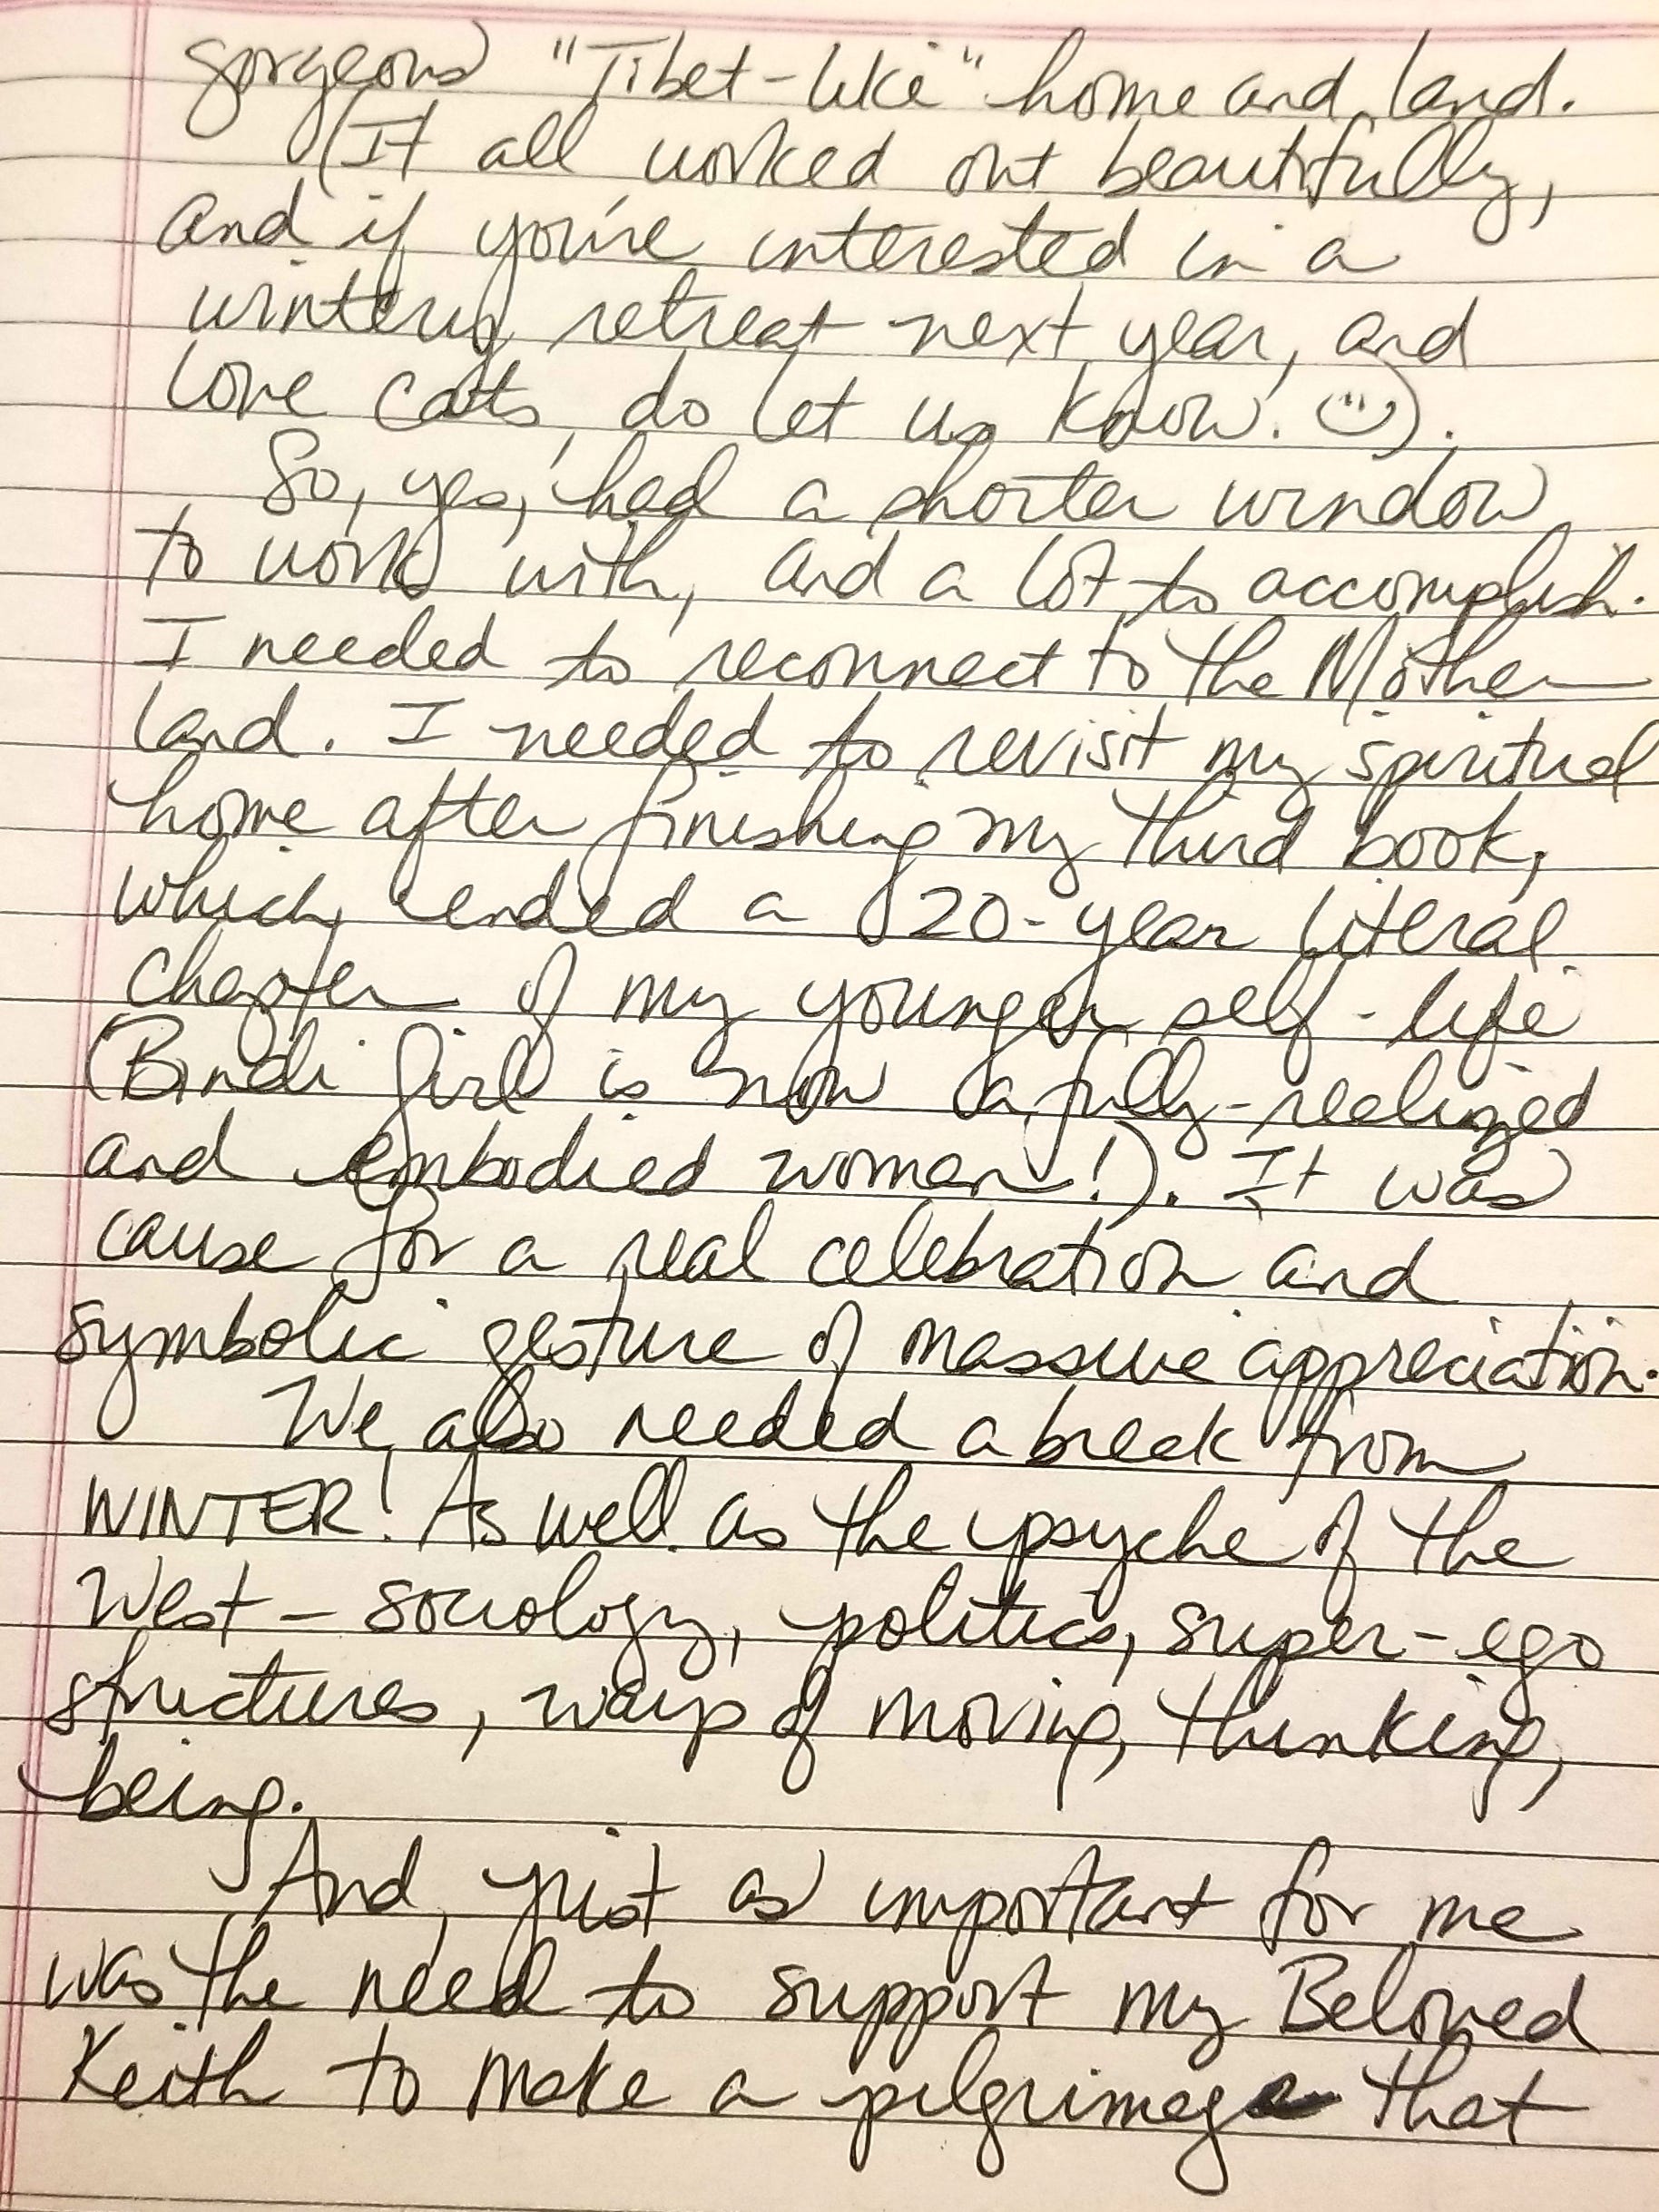 gorgeous "Tibet-like" home and land.
(It all worked out beautifully,
and if you're interested in a
wintery retreat next year, and
love cats, do let us know. ☺).
So, yes, had a shorter window
to work with, and a lot to accomplish.
I needed to reconnect to the Mother
land. I needed to revisit my spiritual
home after finishing my third book,
which ended a 20-year literal
chapter of my younger self-life
(Bindi Girl is now a fully-realized
and embodied woman!). It was
cause for a real celebration and
symbolic gesture of massive appreciation.
We also needed a break from
WINTER! As well as the psyche of the
West – sociology, politics, super-ego
structures, ways of moving, thinking,
being.
And, just as important for me
was the need to support my Beloved
Keith to make a pilgrimage that